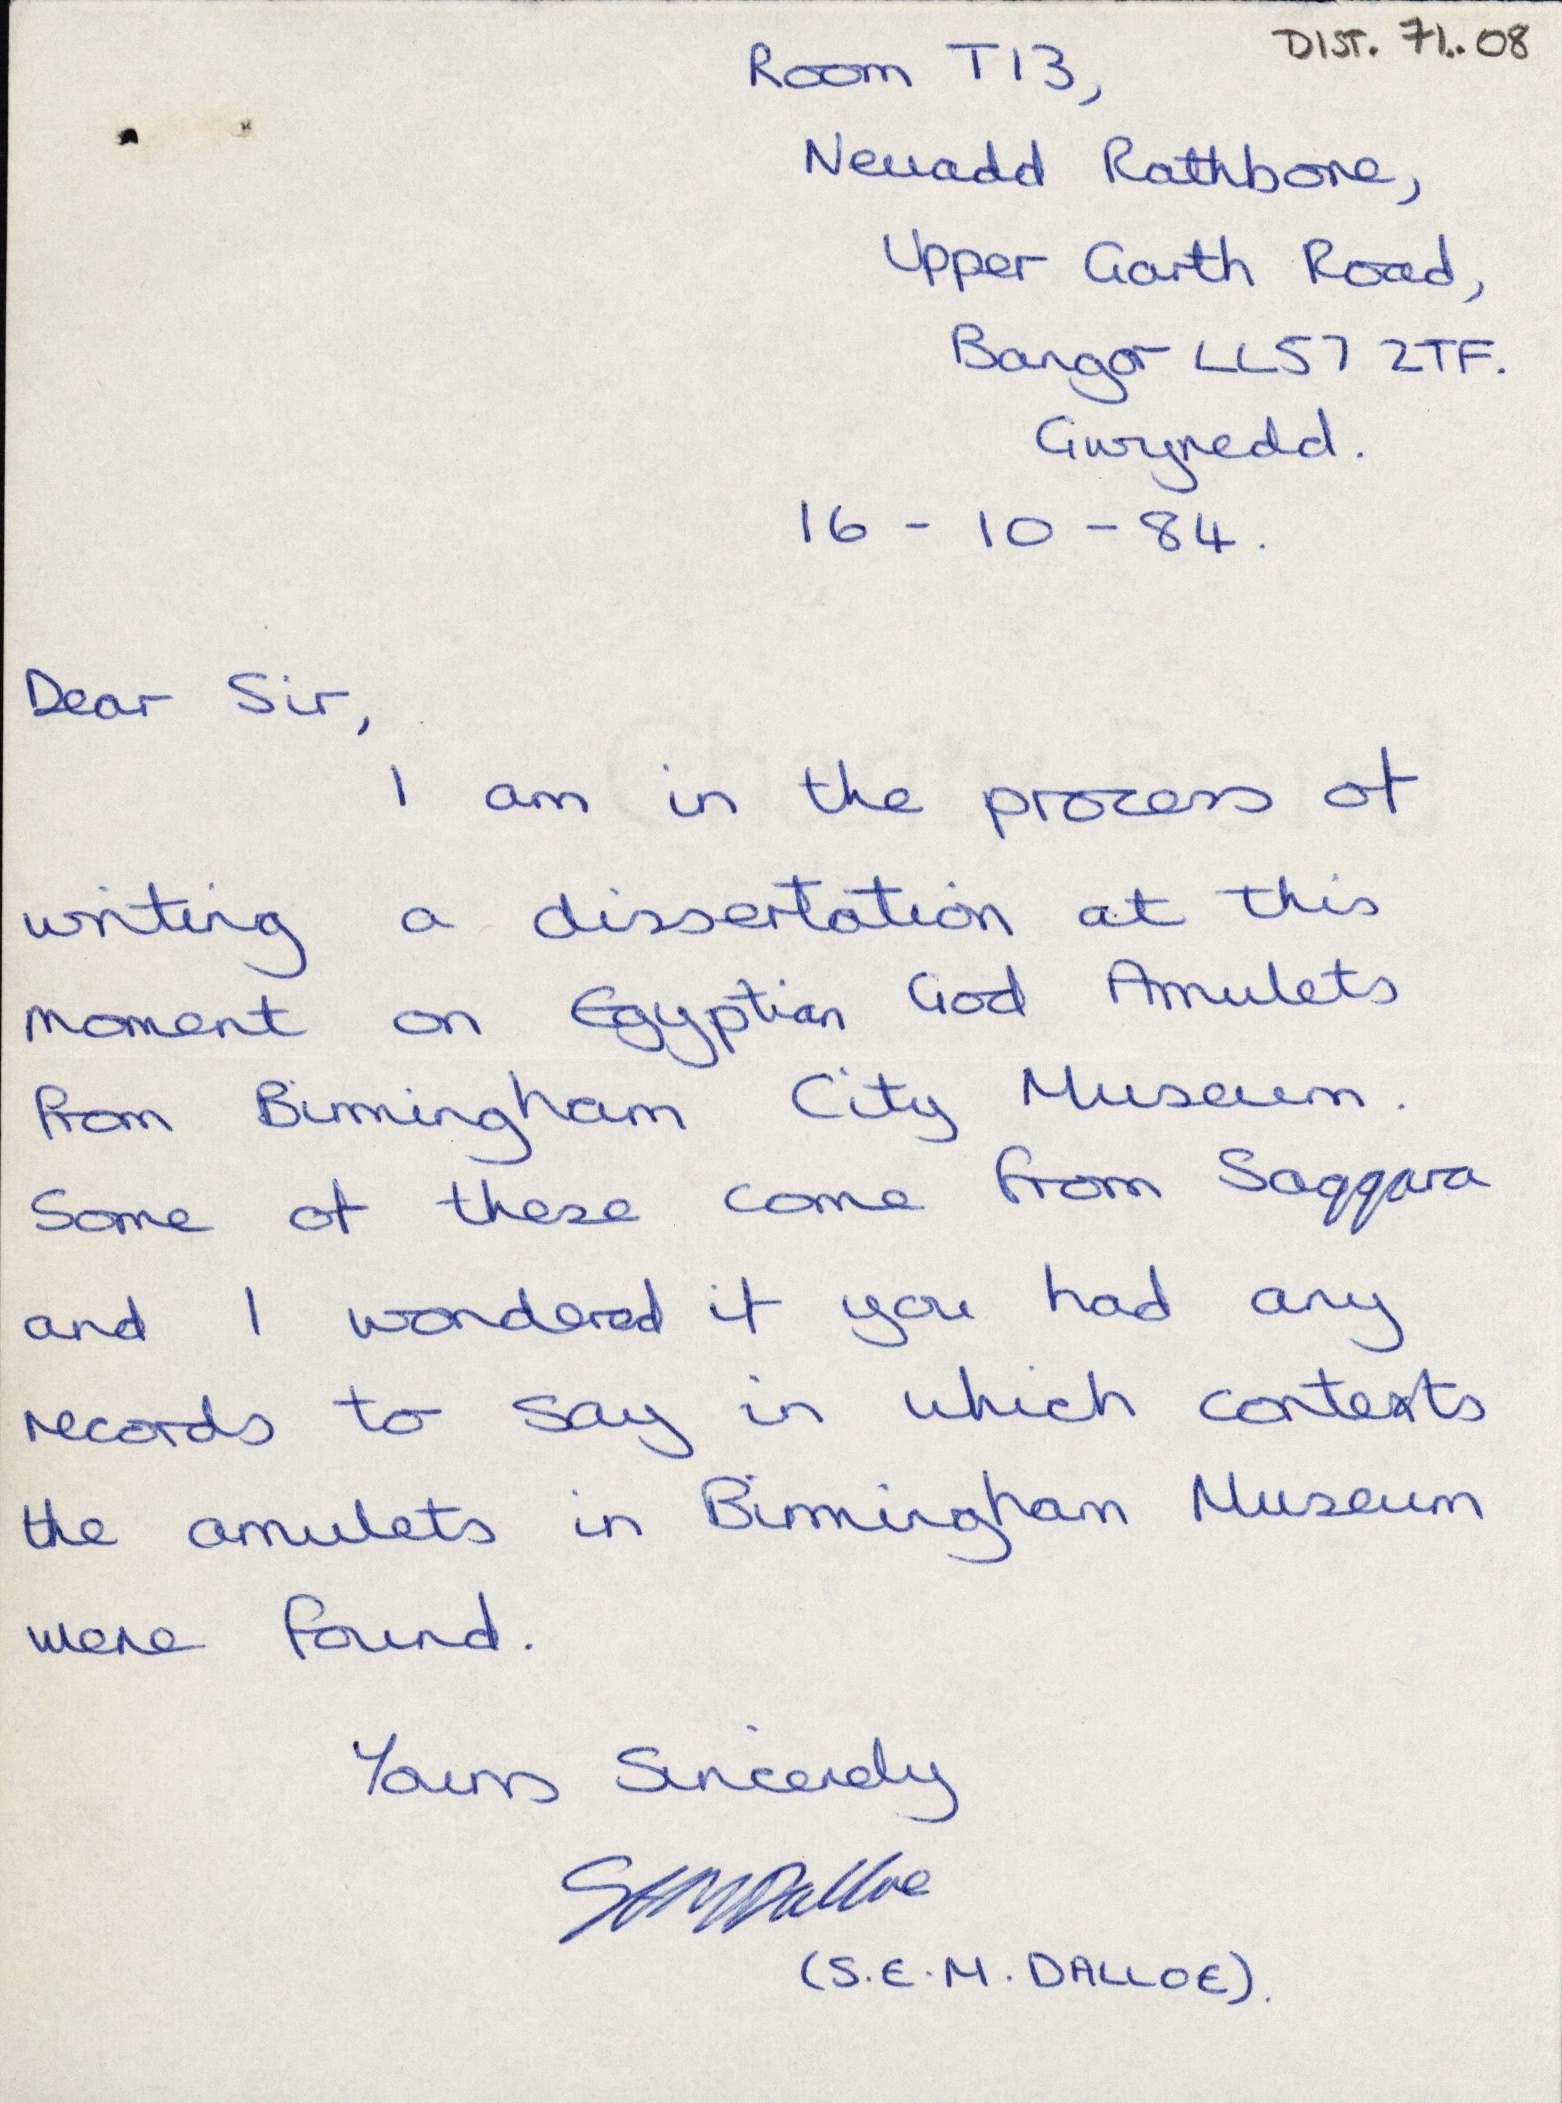 DIST. 71..08
Room T13,
Neuadd Rathbone,
Upper Garth Road,
Bangor LL57 2TF.
Gwynedd.
16 - 10 - 84.
Dear Sir,
I am in the process of
writing a dissertation at this
moment on Egyptian God Amulets
from Birmingham City Museum.
Some of these come from Saqqara
and I wondered if you had any
records to say in which contexts
the amulets in Birmingham Museum
were found.
Yours Sincerely
SEMDalloe
(S.E.M. DALLOE).